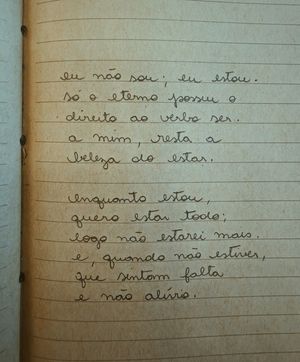 eu não sou; eu estou.
só o eterno possui o
direito ao verbo ser.
a mim, resta a
beleza do estar.
enquanto estou,
quero estar todo;
logo não estarei mais.
e, quando não estiver,
que sintam falta
e não alívio.